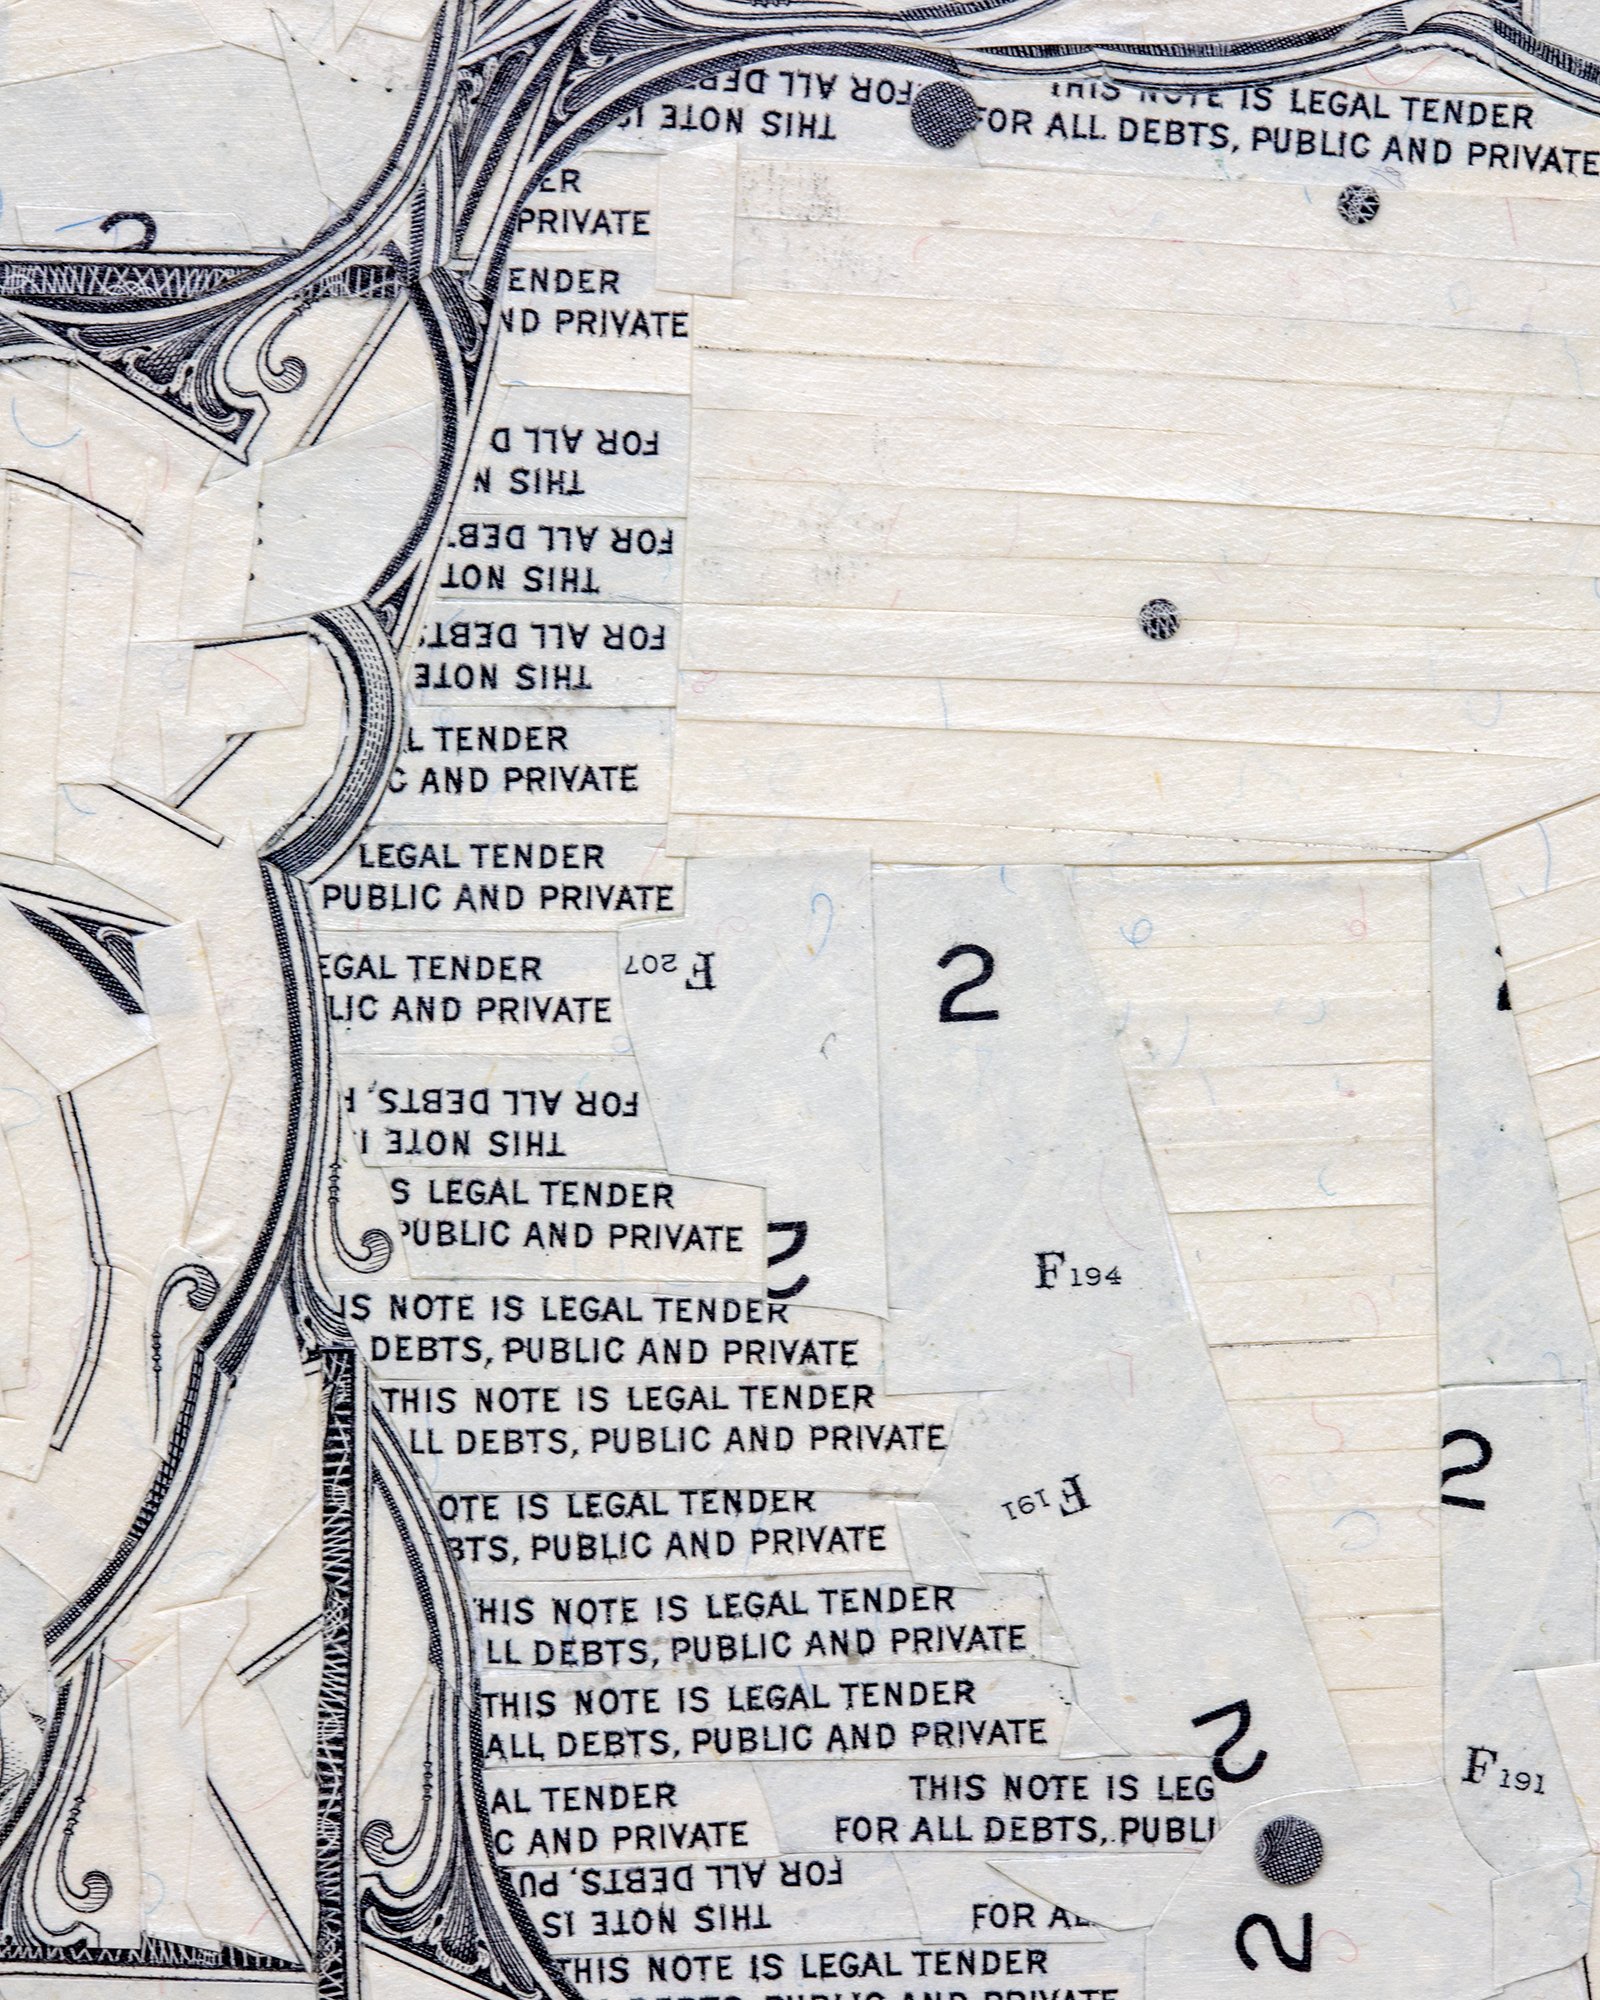 FOR ALL DEBTS
THIS NOTE IS
THIS NOTE IS LEGAL TENDER
FOR ALL DEBTS, PUBLIC AND PRIVATE
ER
PRIVATE
2
ENDER
ND PRIVATE
FOR ALL D
THIS N
FOR ALL DEBT
THIS NOT
FOR ALL DEBTS
THIS NOTE
L TENDER
C AND PRIVATE
LEGAL TENDER
PUBLIC AND PRIVATE
EGAL TENDER
LIC AND PRIVATE
F 207
2
FOR ALL DEBTS, P
THIS NOTE I
S LEGAL TENDER
PUBLIC AND PRIVATE
2
F 194
IS NOTE IS LEGAL TENDER
DEBTS, PUBLIC AND PRIVATE
THIS NOTE IS LEGAL TENDER
LL DEBTS, PUBLIC AND PRIVATE
2
OTE IS LEGAL TENDER
BTS, PUBLIC AND PRIVATE
F 191
HIS NOTE IS LEGAL TENDER
LL DEBTS, PUBLIC AND PRIVATE
THIS NOTE IS LEGAL TENDER
ALL DEBTS, PUBLIC AND PRIVATE
2
F 191
AL TENDER
C AND PRIVATE
THIS NOTE IS LEG
FOR ALL DEBTS, PUBLI
FOR ALL DEBTS, PU
THIS NOTE IS
FOR AL
2
THIS NOTE IS LEGAL TENDER
DEBTS, PUBLIC AND PRIVATE